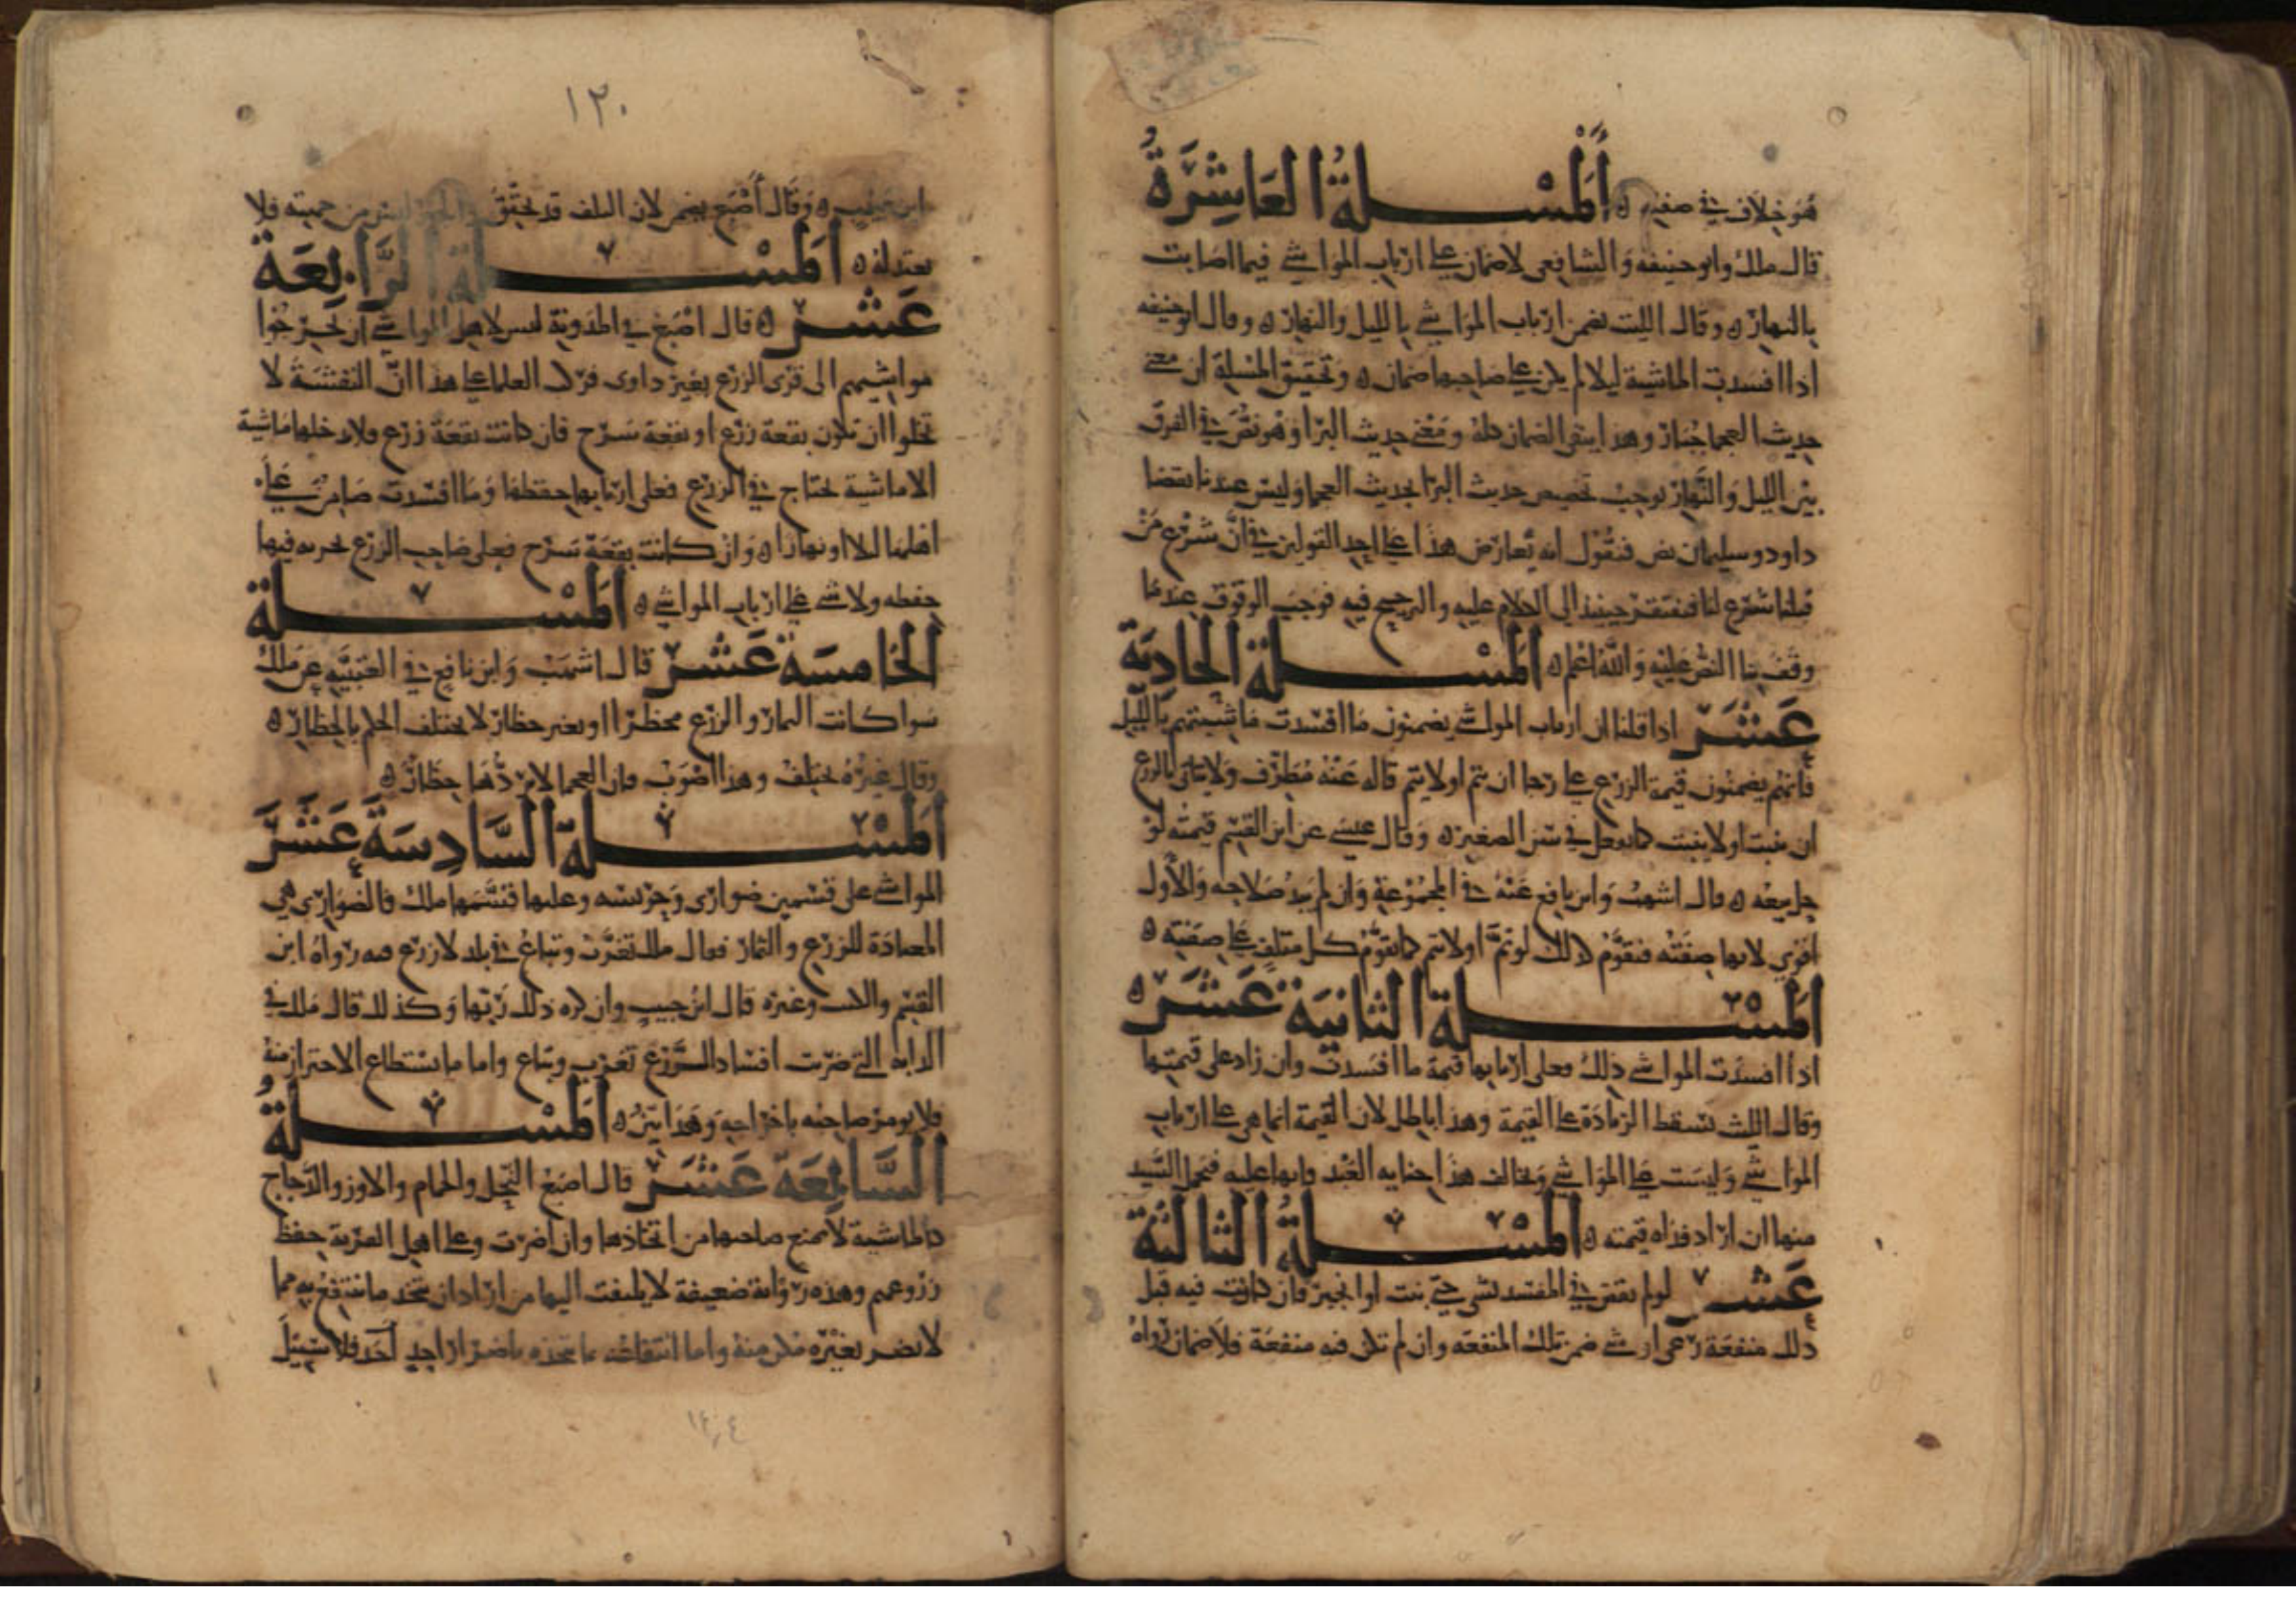 هو خلاف في صفته ه المسلة العاشرة
قال ملك وابو حنيفه والشافعي لا ضمان على ارباب المواشي فيما اصابت
بالنهار ه وقال الليت يضمن ارباب المواشي بالليل والنهار ه وقال ابو حنيفه
اذا افسدت الماشية ليلا لم يكن على صاحبها ضمان ه وتحقيق المسلة ان معنى
حديث العجما جبار وهذا ينفي الضمان كله ومعنى حديث البرا وهو نص في الفرق
بين الليل والنهار يوجب تخصيص حديث البرا بحديث العجما وليس عندنا بقضا
داود وسليمان نص فنقول انه يعارض هذا على احد القولين في ان شرع من
قبلنا شرع لنا فنفتقر حينئذ الى الكلام عليه والترجيح فيه فوجب الوقوف عندما
وقف بنا النص عليه والله اعلم ه المسلة الحادية
عشر اذا قلنا ان ارباب المواشي يضمنون ما افسدت ماشيتهم بالليل
فانهم يضمنون قيمة الزرع على رجا ان يتم او لا يتم قاله عنه مطرف ولا يتانى بالزرع
ان ينبت او لا ينبت كما يفعل في سن الصغير ه وقال عيسى عن ابن القسم قيمته لو
حل بيعه ه قال اشهب وابن نافع عنه في المجموعة وان لم يبد صلاحه والاول
اقوى لانها صفته فنقوم ذلك لو تم او لا يتم كما يقوم كل متلف على صفته ه
المسلة الثانية عشر ه
اذا افسدت المواشي ذلك فعلى اربابها قيمة ما افسدت وان زاد على قيمتها
وقال الليث تسقط الزيادة على القيمة وهذا باطل لان القيمة انما هي على ارباب
المواشي وليست على المواشي وتخالف هذا جنايه العبد فانها عليه فيحمل السيد
منها ان اراد فداه قيمته ه المسلة الثالثة
عشر لو لم يقض في المفسد بشي حتى نبت او انجبر فان كانت فيه قبل
ذلك منفعة رعي او شي ضمن تلك المنفعه وان لم تكن فيه منفعة فلا ضمان رواه
١٢٠
ابن حبيب ه وقال اصبغ يضمن لان التلف قد تحقق والجبر ليس من جهته فلا
يعتد له ه المسلة الرابعة
عشر ه قال اصبغ في المدونة ليس لاهل المواشي ان يخرجوا
مواشيهم الى قرى الزرع بغير ذاوى فرك العلما على هذا ان النفشة لا
تخلوا ان تكون بقعة زرع او بقعة سرح فان كانت بقعة زرع فلا تدخلها ماشية
الا ماشية تحتاج في الزرع فعلى اربابها حفظها وما افسدت ضامن على
اهلها ليلا او نهارا ه وان كانت بقعة سرح فعلى صاحب الزرع فيها
حفظه ولا شي على ارباب المواشي ه المسلة
الخامسة عشر قال اشهب وابن نافع في العتبية عن ملك
سوا كانت الثمار والزرع محظرا او بغير حظار لا يختلف الحكم بالحظار ه
وقال غيره يختلف وهذا اصوب فان العجما لا يردها حظار ه
المسلة السادسة عشر
المواشي على قسمين ضوارى وحريسه وعليها قسمها ملك فالضوارى هي
المعتادة للزرع والثمار فقال ملك تغرب وتباع في بلد لا زرع فيه رواه ابن
القسم والكتاب وغيره قال ابن حبيب وان كره ذلك ربها وكذلك قال ملك في
الدابه التي ضريت افساد الزرع تغرب وتباع واما ما يستطاع الاحتراز منه
فلا يومر صاحبه باخراجه وهذا بين ه المسلة
السابعة عشر قال اصبغ النحل والحمام والاوز والدجاج
كالماشية لا يمنع صاحبها من اتخاذها وان اضرت وعلى اهل القرية حفظ
زروعهم وهذه رواية ضعيفة لا يلتفت اليها من اراد ان يتخذ ما ينتفع به مما
لا يضر بغيره مكن منه واما انتفاعه بما يتخذه باضرار احد احد فلا سبيل